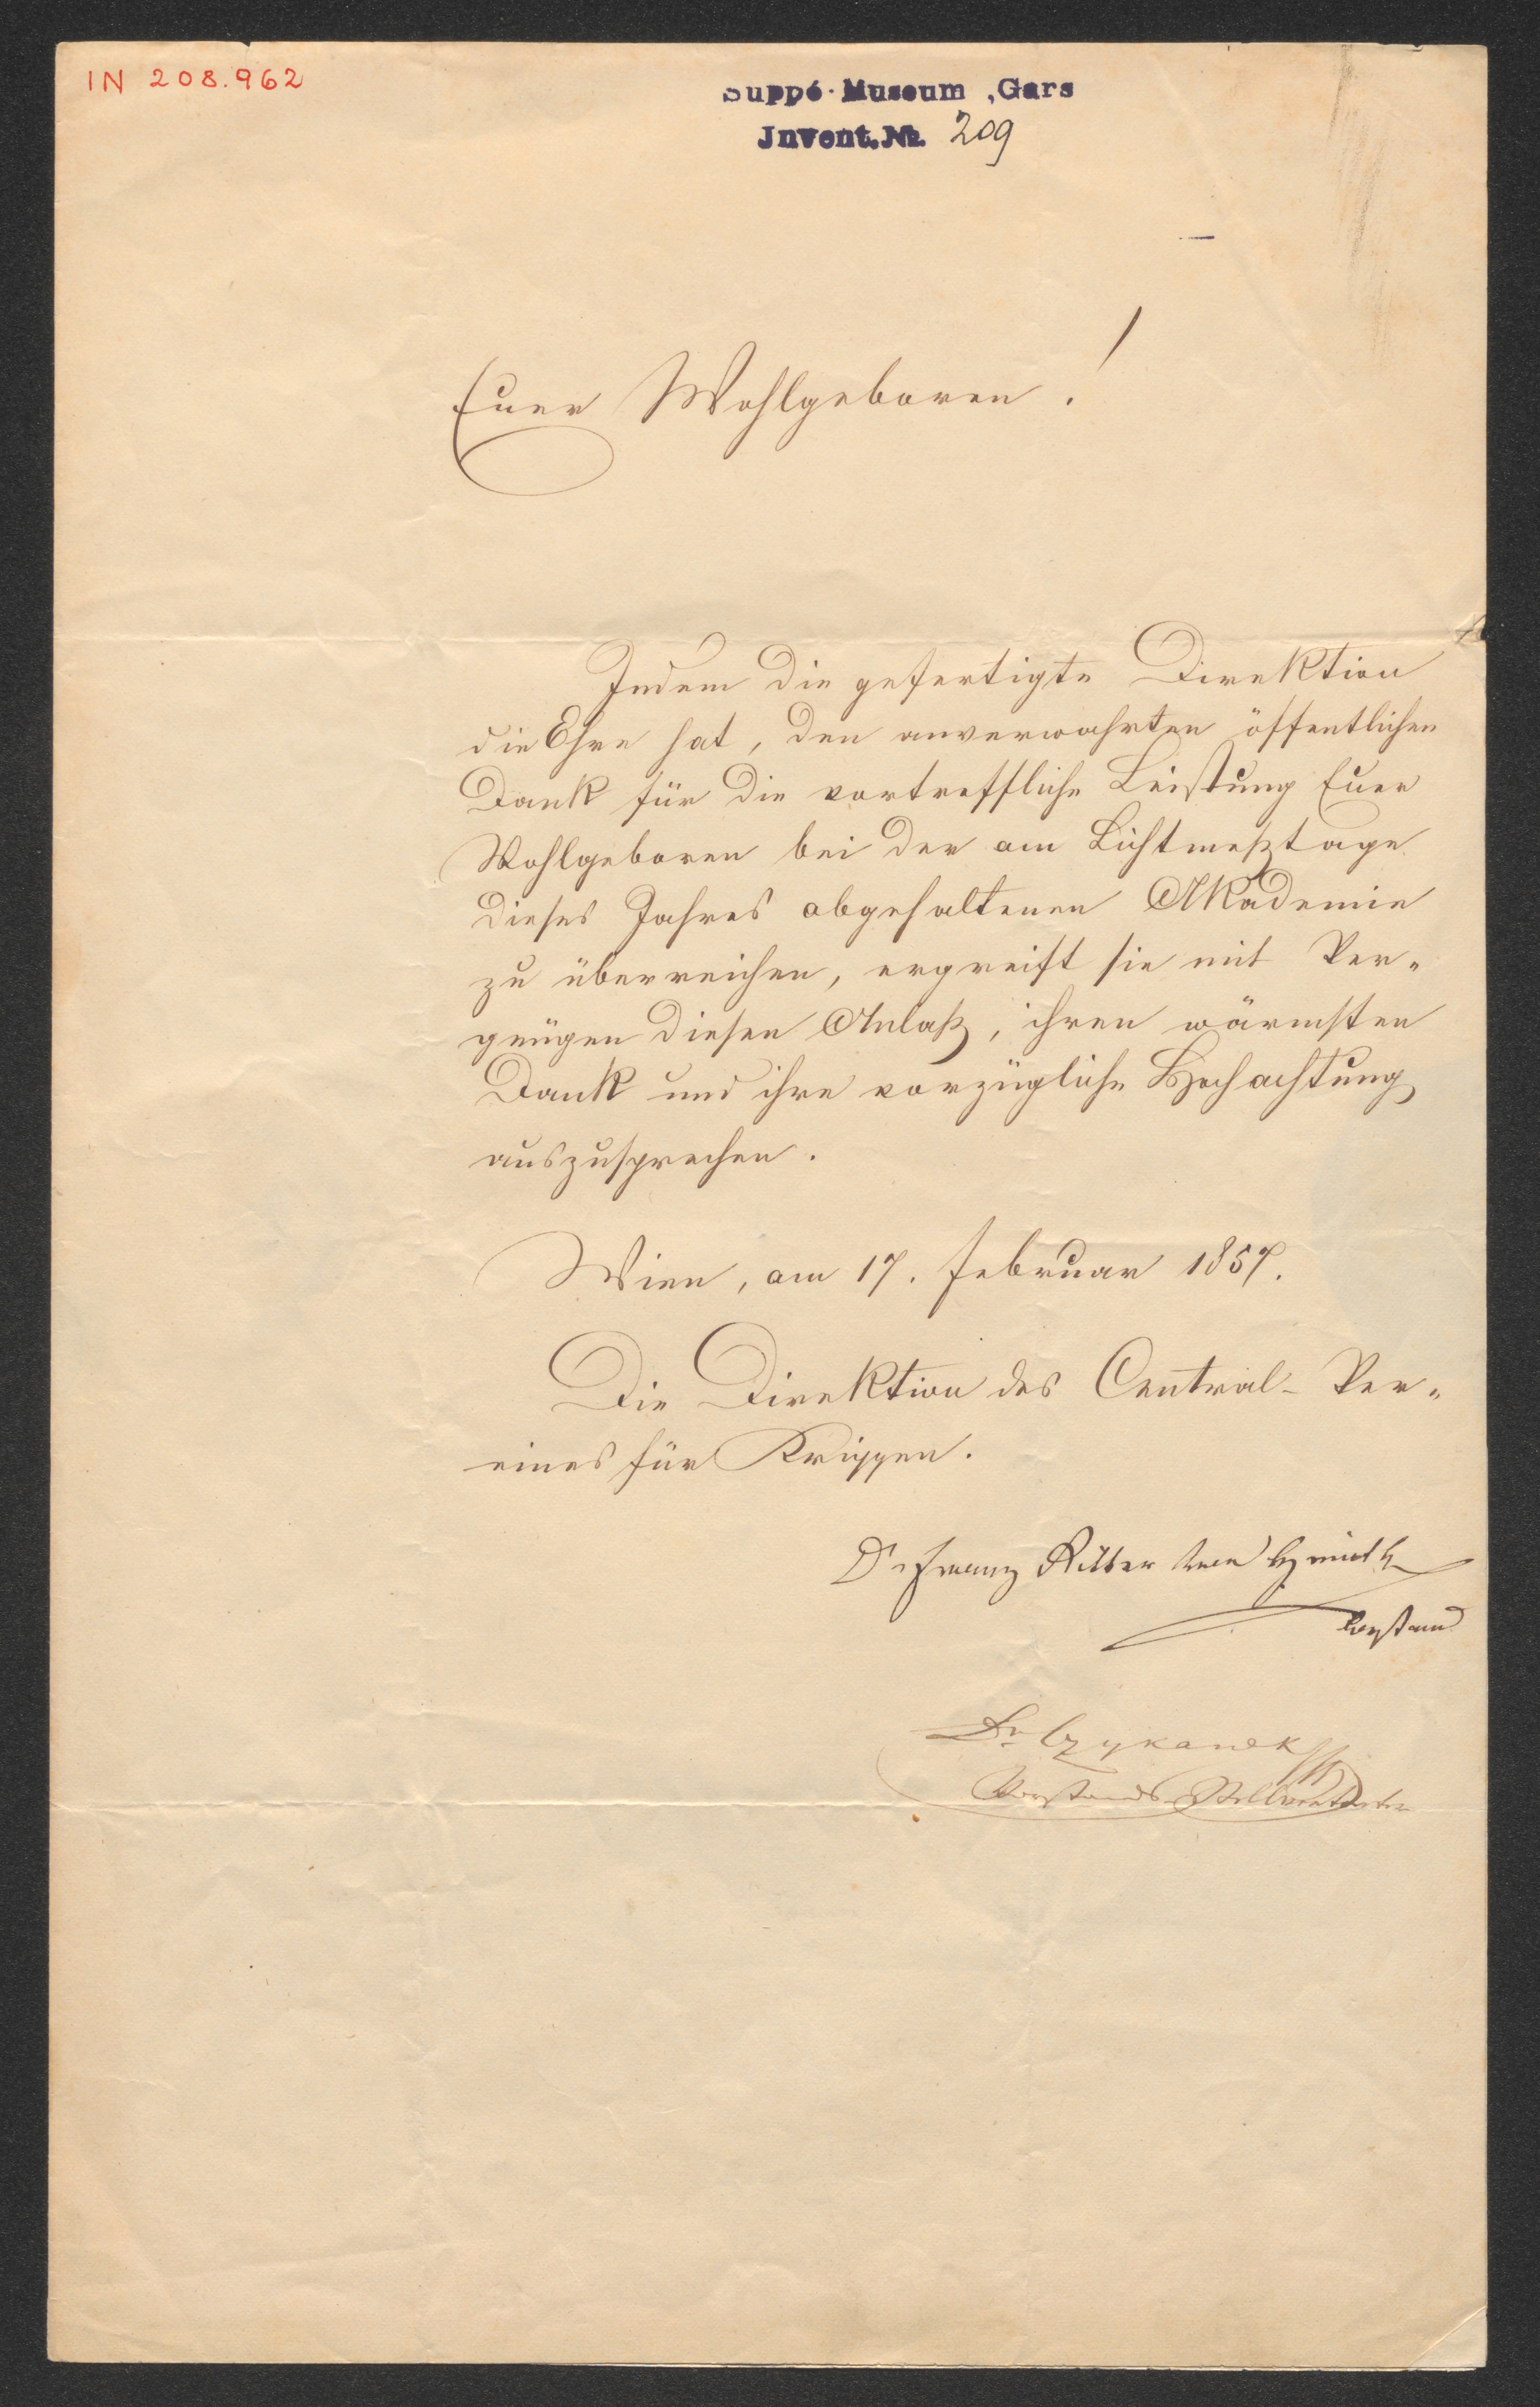 IN 208.962
Suppé-Museum, Gars
Invent.Nr. 209
Euer Wohlgeboren!
Indem die gefertigte Direktion
die Ehre hat, den anverwahrten öffentlichen
Dank für die vortreffliche Leistung Euer
Wohlgeboren bei der am Lichtmeßtage
dieses Jahres abgehaltenen Akademie
zu überreichen, ergreift sie mit Ver-
gnügen diesen Anlaß, ihren wärmsten
Dank und ihre vorzügliche Hochachtung
auszusprechen.
Wien, am 17. Februar 1857.
Die Direktion des Central-Ver-
eines für Krippen.
Dr Franz Ritter von
Vorstand
Dr. Czykanek
Vorstands-Stellvertreter